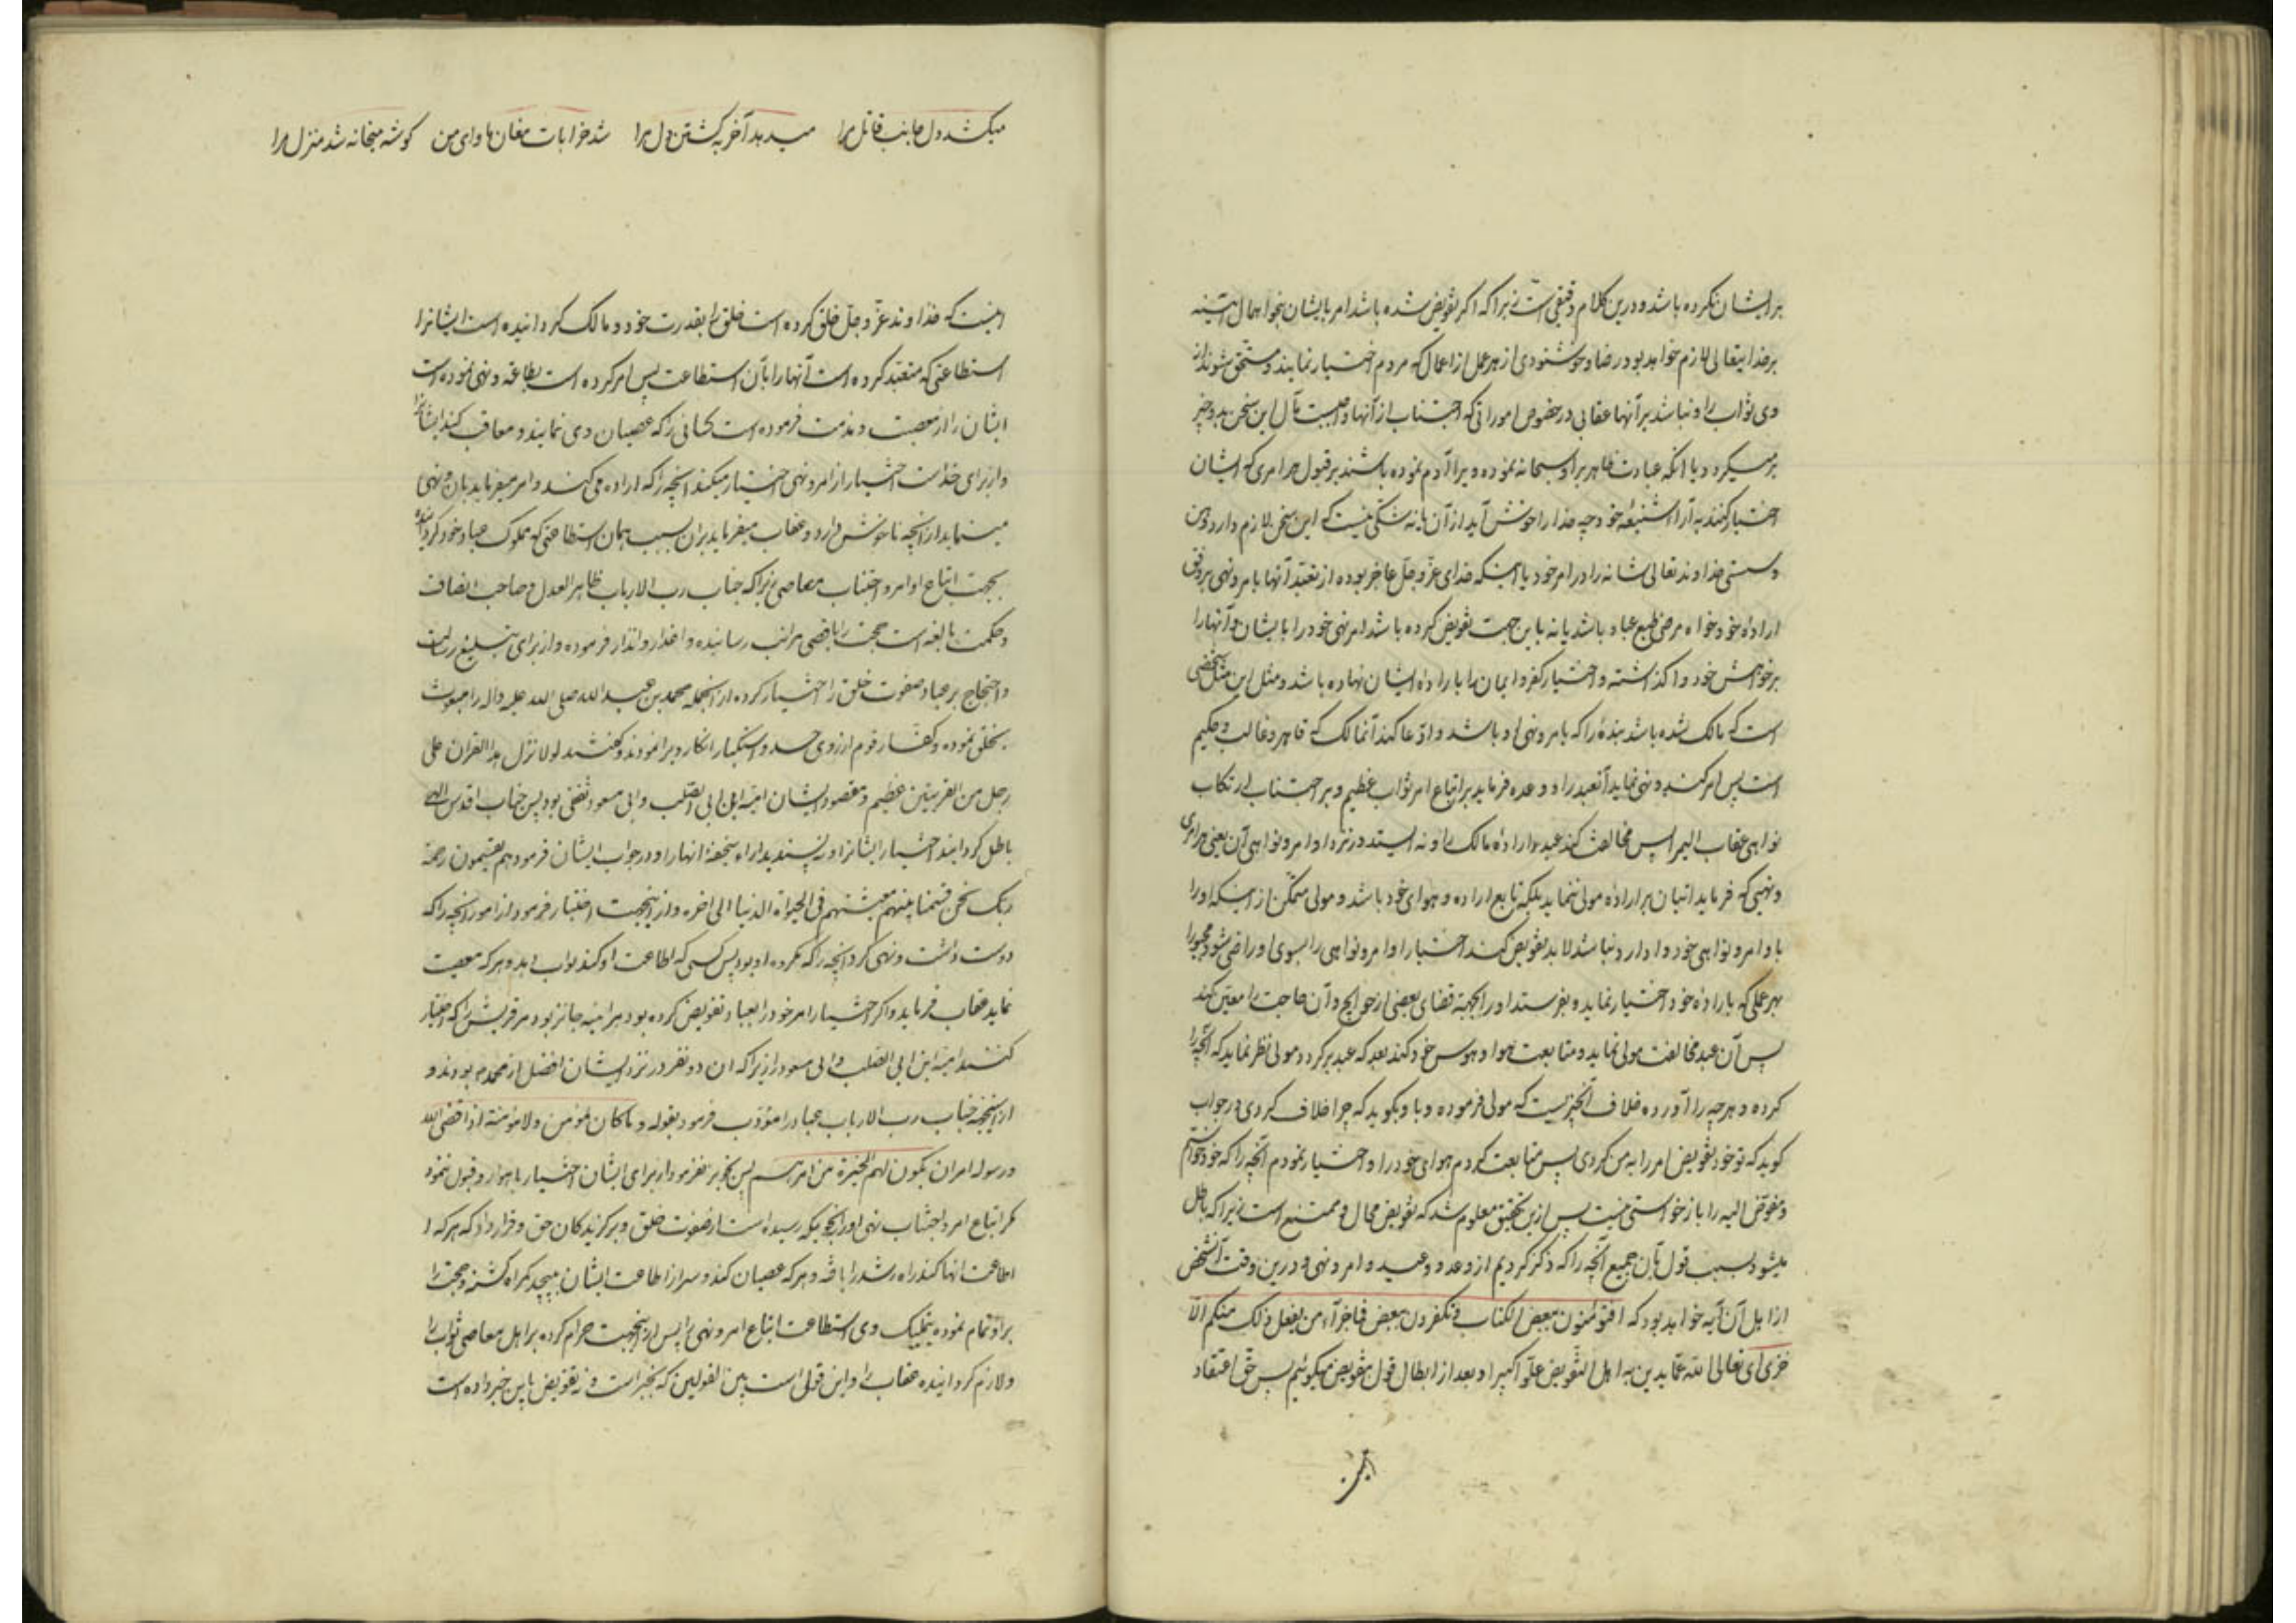 بر ایشان نکرده باشد و درین کلام دقیقی است زیرا که اگر تفویض شده باشد امر بایشان بنحو اهمال هرآینه
بر خدایتعالی لازم خواهد بود رضا و خوشنودی از هر عمل از اعمال که مردم اختیار نمایند و مستحق شوند از
وی ثواب را و نباشد بر آنها عقابی در خصوص اموراتی که اجتناب از آنها واجبست مآل این سخن بدو چیز
برمیگردد یا انکه عبادت ظاهر بر او سبحانه نموده ویرا الزام نموده باشند بر قبول هر امری که ایشان
اختیار کنند به آراء شنیعه خود چه خدا را خوش آید از آن یا نه شکی نیست که این سخن لازم دارد وهن
و سستی خداوند تعالی شانه را در امر خود یا اینکه خدای عز و جل عاجز بوده از تعبد آنها بامر و نهی بر وفق
اراده خود خواه مرضی طبع عباد باشد یا نه باین جهت تفویض کرده باشد امر نهی خود را بایشان و آنها را
بر خواهش خود واگذاشته و اختیار کفر و ایمان را باراده ایشان نهاده باشد و مثل این مثل شخصی
است که مالک شده باشد بنده را که بامر و نهی او باشد و ادعا کند آنمالک که قاهر و غالب و حکیم
است پس امر کند و نهی نماید آنعبد را و وعده فرماید بر اتباع امر ثواب عظیم و بر اجتناب ارتکاب
نواهی عقاب الیم پس مخالفت کند عبد اراده مالک را و نه ایستد در نزد اوامر و نواهی آن یعنی هر امری
و نهیی که فرماید اتیان بر اراده مولی ننماید بلکه تابع اراده و هوای خود باشد و مولی متمکن از اینکه او را
باوامر و نواهی خود وادارد نباشد لابد تفویض کند اختیار اوامر و نواهی را بسوی او راضی شود مجبورا
بهر عملی که باراده خود اختیار نماید و بفرستد او را بجهة قضای بعضی از حوایج و آن حاجت را معین کند
پس آن عبد مخالفت مولی نماید و متابعت هوا و هوس خود کند بعد که عبد برگردد مولی نظر نماید که آنچه را
کرده و هر چه را آورده خلاف آنچیزیست که مولی فرموده و باو بگوید که چرا خلاف کردی در جواب
گوید که تو خود تفویض امر را به من کردی پس متابعت کردم هوای خود را و اختیار نمودم آنچه را که خود خواستم
و مفوض الیه را بازخواستی نیست پس ازین تحقیق معلوم شد که تفویض محال و ممتنع است زیرا که باطل
میشود بسبب قول بآن جمیع آنچه را که ذکر کردیم از وعد و وعید و امر و نهی و درین وقت آنشخص
از اهل آن آیه خواهد بود که افتؤمنون ببعض الکتاب و تکفرون ببعض فما جزآء من یفعل ذلک منکم الا
خزی ای تعالی الله عما یدین به اهل التفویض علوا کبیرا و بعد از ابطال قول بتفویض میگوئیم پس حق اعتقاد
میکشد دل جانب قاتل مرا میدهد آخر به کشتن دل مرا شد خرابات مغان ماوای من گوشه میخانه شد منزل مرا
اینست که خداوند عز و جل خلق کرده است خلق را بقدرت خود و مالک گردانیده است ایشانرا
استطاعتی که متعبد کرده است آنها را بآن استطاعت پس امر کرده است بطاعة و نهی نموده است
ایشان را از معصیت و مذمت فرموده است کسانی را که عصیان وی نمایند و معاقب کند ایشانرا
و از برای خداست اختیار از امر و نهی اختیار میکند آنچه را که اراده می کند و امر میفرماید بان و نهی
مینماید از انچه ناخوش دارد و عقاب میفرماید بران بسبب همان استطاعتی که مملوک عباد خود گردانیده
بجهت اتباع اوامر و اجتناب معاصی زیرا که جناب رب الارباب ظاهر العدل و صاحب انصاف
و حکمت بالغه است حجت را باقصی مراتب رسانیده و اعذار و انذار فرموده و از برای تبلیغ رسالت
و احتجاج بر عباد صفوت خلق را اختیار کرده از آنجمله محمد بن عبد الله صلی الله علیه و آله را مبعوث
بخلق نموده و کفار قوم از روی حسد و استکبار انکار ویرا نمودند و گفتند لولا نزل هذا القران علی
رجل من القریتین عظیم و مقصود ایشان امیة ابن ابی الصلت و ابی مسعود ثقفی بود پس جناب اقدس الهی
باطل گردانید اختیار ایشانرا و نپسندید اراء سخیفه انها را و در جواب ایشان فرمود اهم یقسمون رحمة
ربک نحن قسمنا بینهم معیشتهم فی الحیوة الدنیا الی اخره و از اینجهت اختیار فرمود از امور انچه را که
دوست داشت و نهی کرد آنچه را که مکروه او بود پس کسی که اطاعت او کند ثواب دهد و هر که معصیت
نماید عقاب فرماید و اگر اختیار امر خود را بعباد تفویض کرده بود هرآینه جائز بود مر قریش را که اختیار
کنند امیة ابن ابی الصلت و ابی مسعود را زیرا که ان دو نفر در نزد ایشان افضل از محمد بودند و
ازینجهة جناب رب الارباب عباد را مؤدب فرمود بقوله و ما کان لمؤمن ولا مؤمنة اذا قضی الله
و رسوله امرا ان یکون لهم الخیرة من امرهم پس تجویز نفرمود از برای ایشان اختیار باهوا و قبول ننمود
مگر اتباع امر و اجتناب نهی او را بنحویکه رسیده است از صفوت خلق و برگزیدگان حق و قرار داد که هر که
اطاعت انها کند راه رشد را یافته و هر که عصیان کند و سر از اطاعت ایشان بپیچد گمراه گشته و حجت را
بر او تمام نموده بتملیک وی استطاعت اتباع امر و نهی را پس ازینجهت حرام کرده بر اهل معاصی ثواب را
و لازم گردانیده عقاب را و این قول است بین القولین که نه جبر است و نه تفویض باین خبر داده است